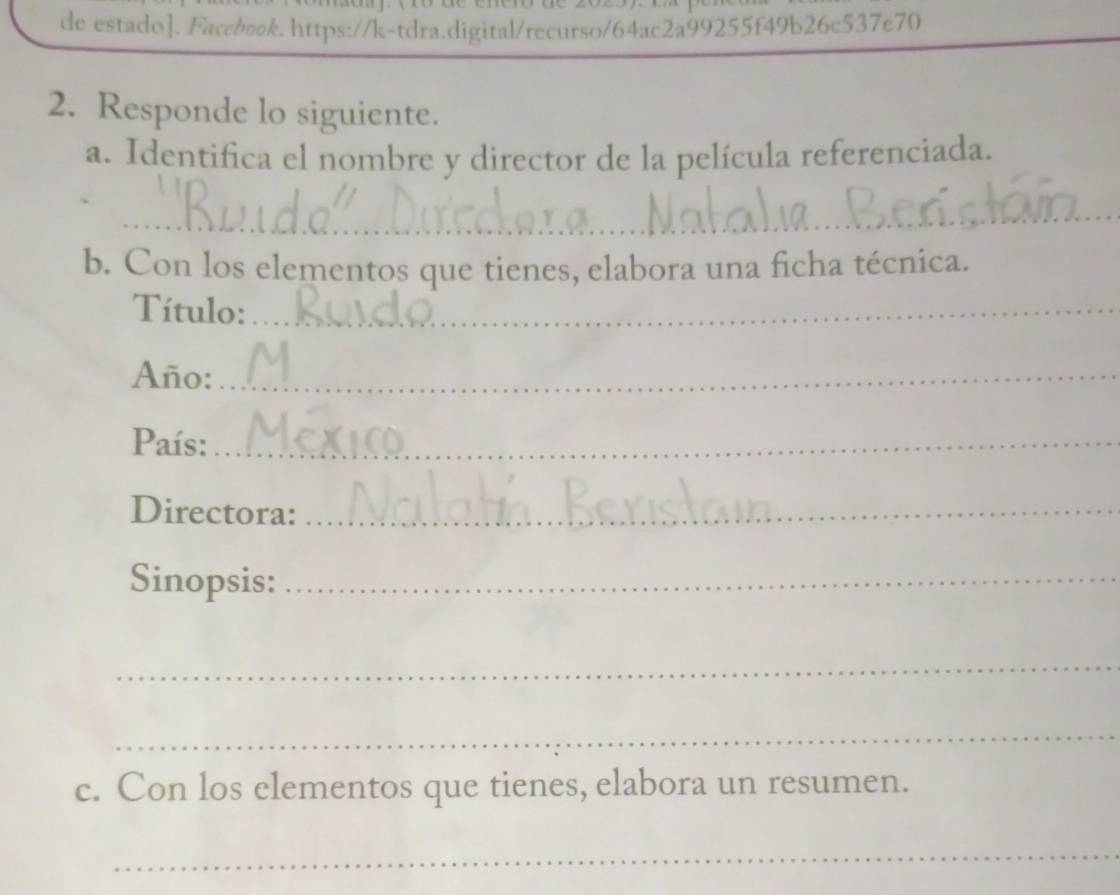 de estado]. Facebook. https://k-tdra.digital/recurso/64ac2a99255f49b26c537e70
2. Responde lo siguiente.
a. Identifica el nombre y director de la película referenciada.
"Ruido" Directora Natalia Beristáin
b. Con los elementos que tienes, elabora una ficha técnica.
Título: Ruido
Año: M
País: México
Directora: Natatin Beristain
Sinopsis:
c. Con los elementos que tienes, elabora un resumen.